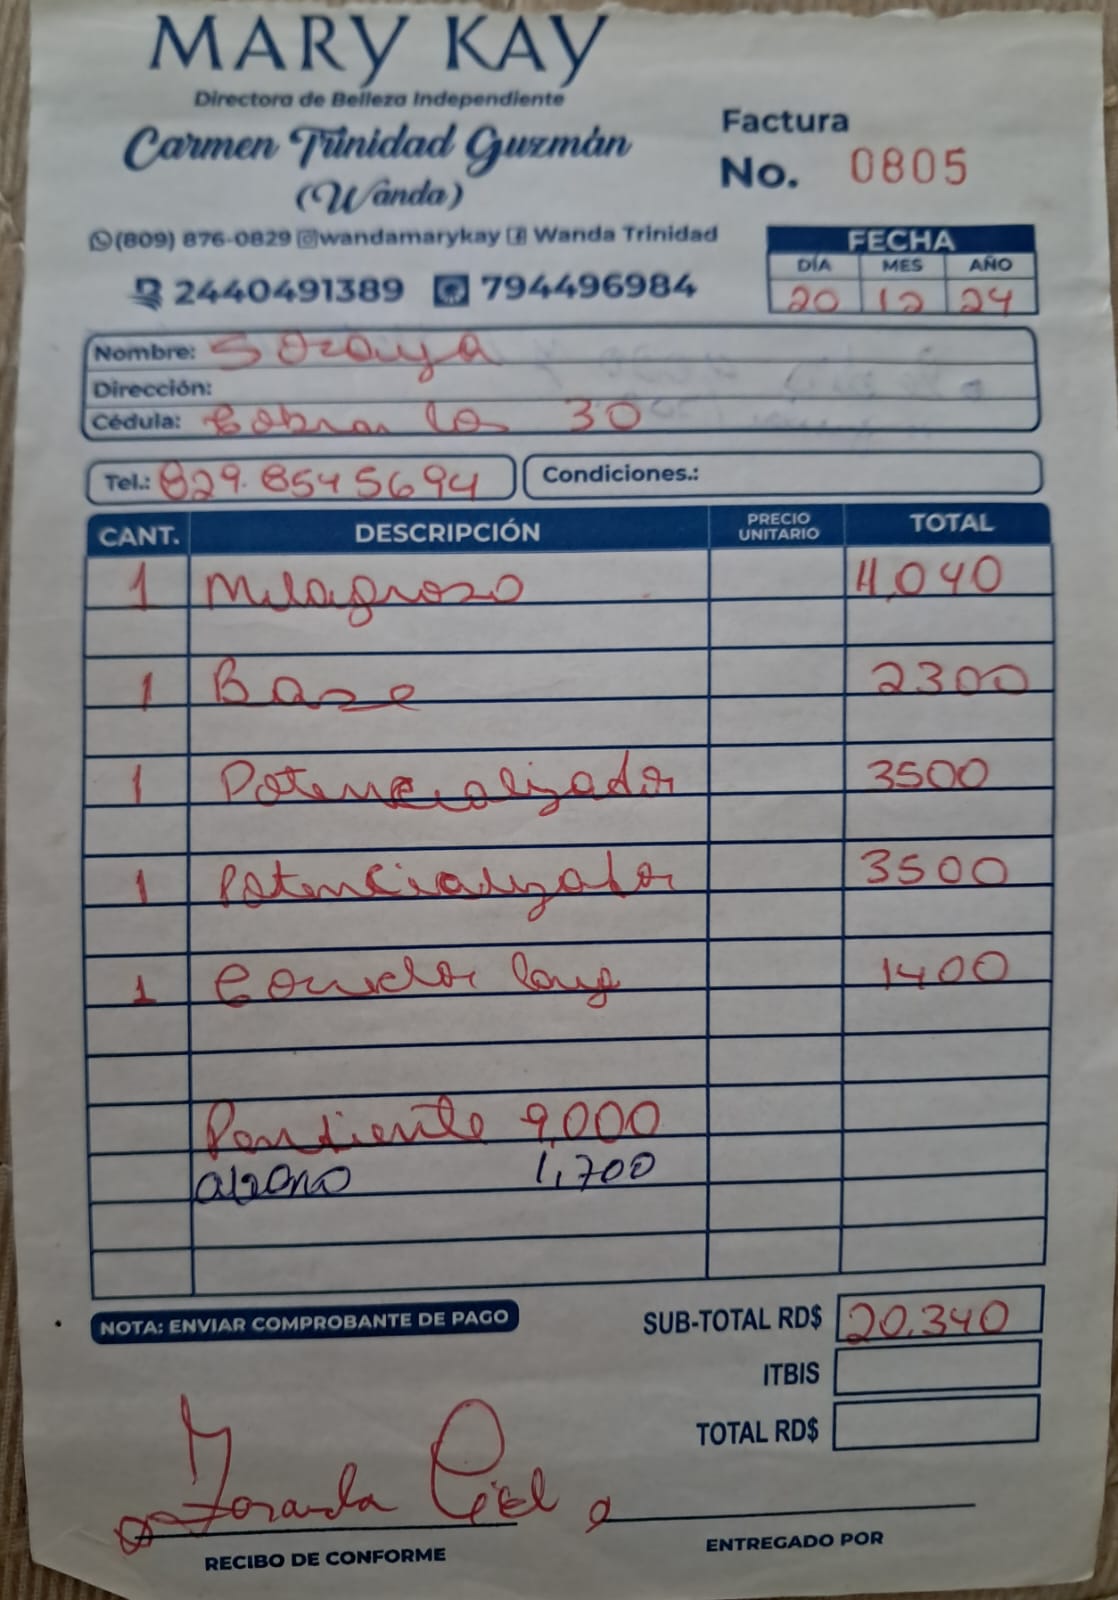 MARY KAY
Directora de Belleza Independiente
Carmen Trinidad Guzmán
(Wanda)
Factura
No. 0805
(809) 876-0829 wandamarykay Wanda Trinidad
2440491389 794496984
FECHA
DÍA MES AÑO
20 12 24
Nombre: Soraya
Dirección:
Cédula: Cobrar los 30
Tel.: 829.8545694 Condiciones.:
CANT. DESCRIPCIÓN PRECIO UNITARIO TOTAL
1 Milagroso 11,040
1 Base 2300
1 Potencializador 3500
1 Potencializador 3500
1 1400
Pendiente 9,000
abono 1,700
NOTA: ENVIAR COMPROBANTE DE PAGO
SUB-TOTAL RD$ 20,340
ITBIS
TOTAL RD$
RECIBO DE CONFORME
ENTREGADO POR